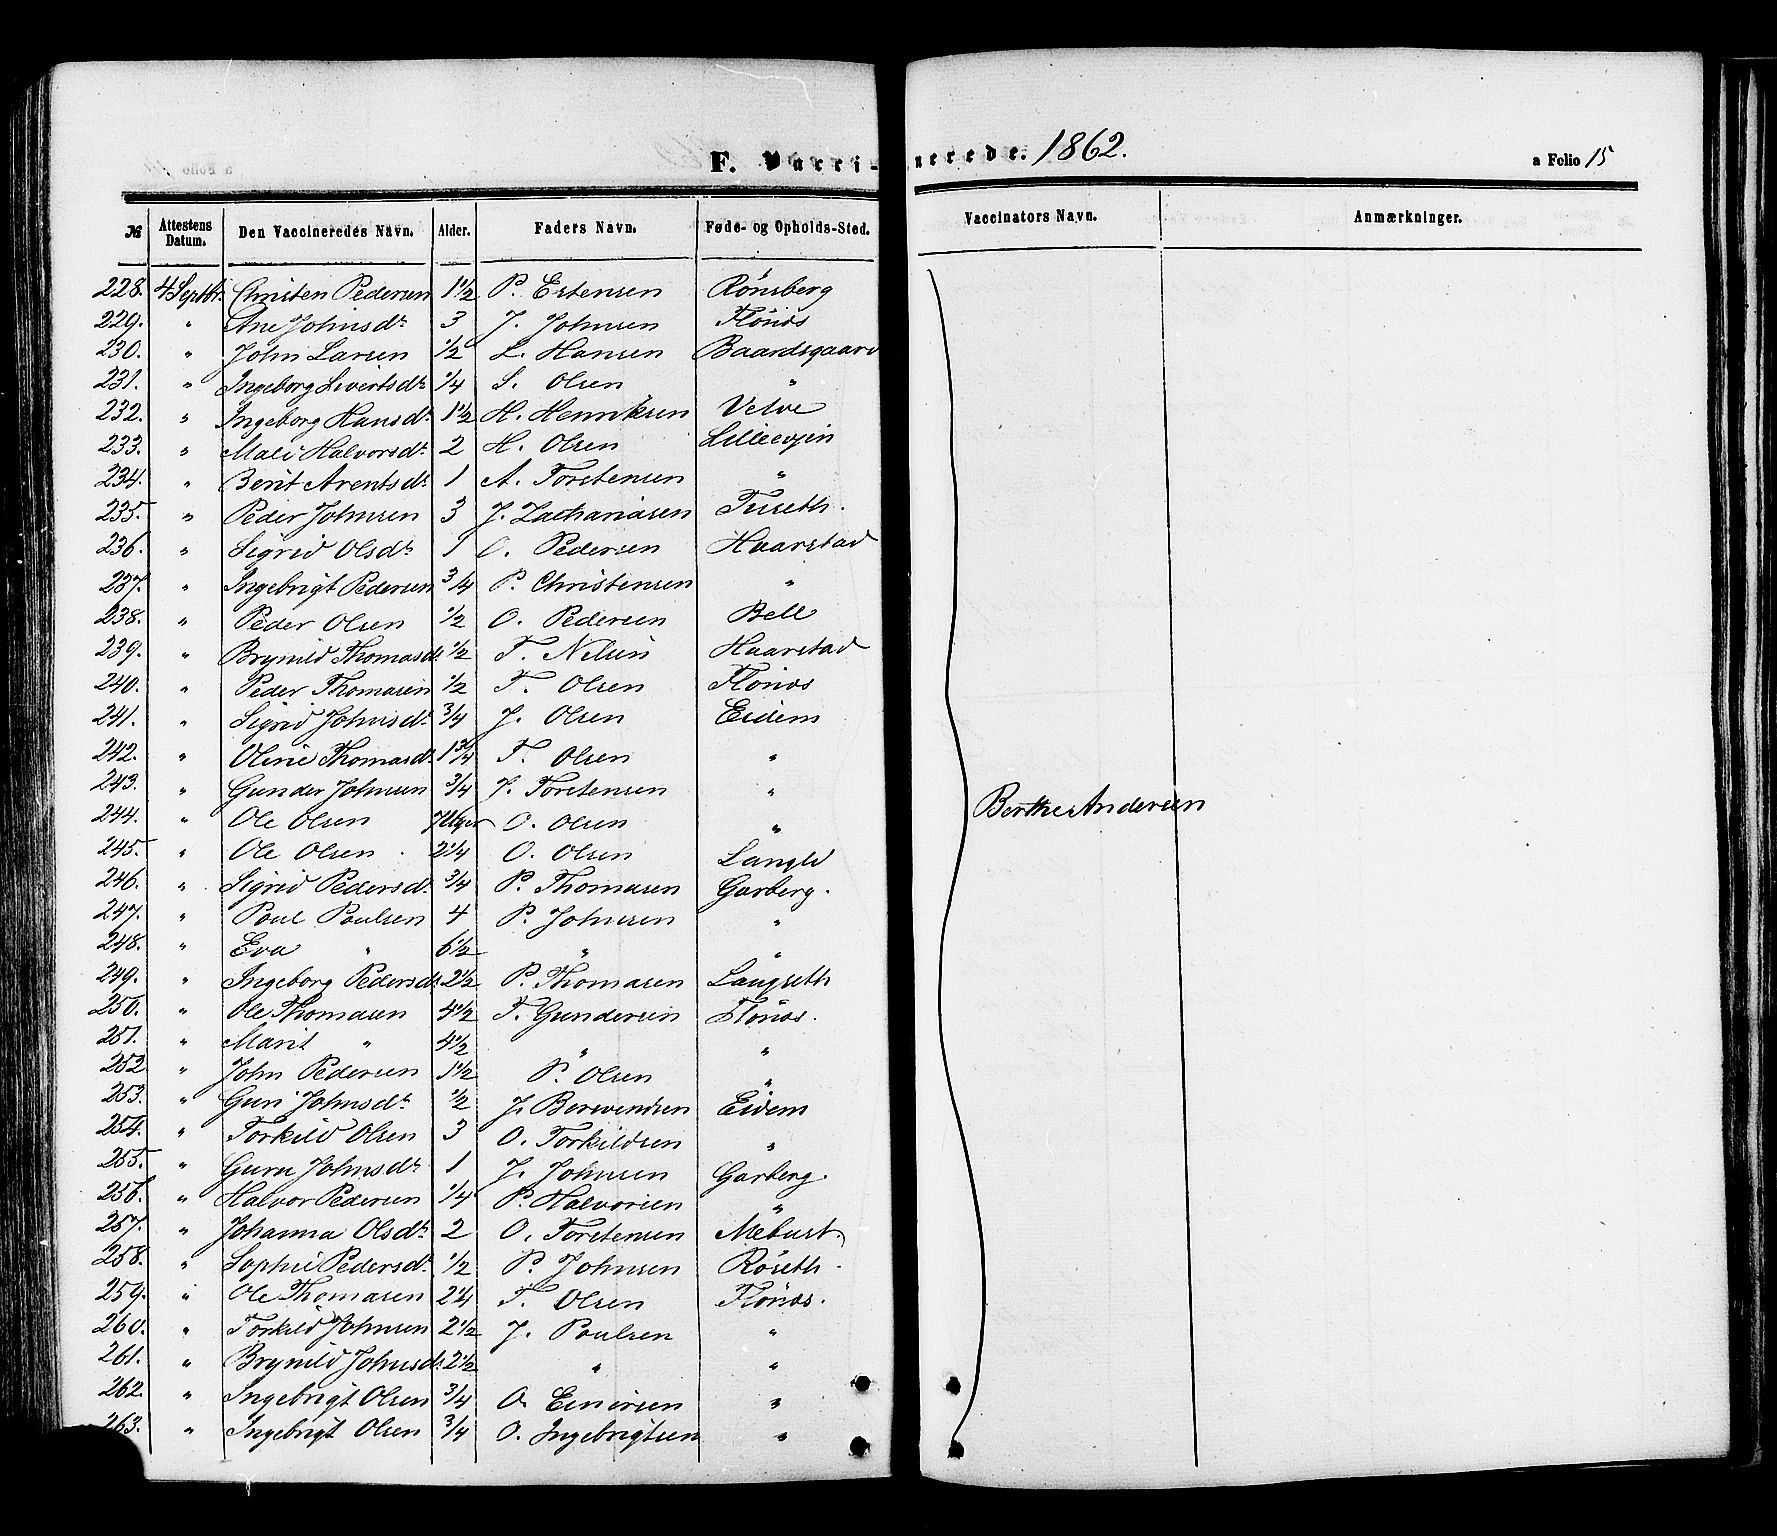 F. Vacci-nerede. 1862.
a Folio 15
№ Attestens Datum. Den Vaccineredes Navn. Alder. Faders Navn. Føde- og Opholds-Sted. Vaccinators Navn. Anmærkninger.
228. 4 Septbr. Christen Pedersen 1½ P. Estensen Rönsberg
229. " Ane Johnsdr. 3 J. Johnsen Flönæs
230. " John Larsen ½ L. Hansen Baardsgaard
231. " Ingeborg Sivertsdr. ¼ S. Olsen "
232. " Ingeborg Hansdr. 1½ H. Henriksen Velve
233. " Mali Halvorsdr. 2 H. Olsen Lilleevjen
234. " Berit Arentsdr. 1 A. Torstensen "
235. " Peder Johnsen 3 J. Zachariasen Tuseth.
236. " Sigrid Olsdr. 1 O. Pedersen Haarstad
237. " Ingebrigt Pedersen ¾ P. Christensen "
238. " Peder Olsen ½ O. Pedersen Bell
239. " Brynild Thomasdr. ½ T. Nelsen Haarstad
240. " Peder Thomasen ½ T. Olsen Flönæs
241. " Sigrid Johnsdr. ¾ J. Olsen Eidem
242. " Oline Thomasdr. 1¾ T. Olsen "
243. " Gunder Johnsen ¾ J. Torstensen "
244. " Ole Olsen 7 Uger O. Olsen "
Berthe Andersen
245. " Ole Olsen 2¼ O. Olsen Langli
246. " Sigrid Pedersdr. ¾ P. Thomasen Garberg.
247. " Poul Poulsen 4 P. Johnsen "
248. " Eva " 6½ " "
249. " Ingeborg Pedersdr. 2½ P. Thomasen Langseth
250. " Ole Thomasen 4½ T. Gundersen Flönæs.
251. " Marit " 4½ " "
252 " John Pedersen 1½ P. Olsen "
253. " Guri Johnsdr. ½ J. Berendsen Eidem
254. " Torkild Olsen 3 O. Torkildsen "
255. " Guru Johnsdr. 1 J. Johnsen Garberg.
256. " Halvor Pedersen ¼ P. Halvorsen "
257. " Johanna Olsdr. 2 O. Torstensen Mebust.
258. " Sophie Pedersdr. ½ P. Johnsen Röseth.
259. " Ole Thomasen 2¼ T. Olsen Flönæs.
260. " Torkild Johnsen 2½ J. Poulsen "
261. " Brynild Johnsdr. 2½ " "
262. " Ingebrigt Olsen ¾ O. Einersen "
263. " Ingebrigt Olsen ¾ O. Ingebrigtsen "